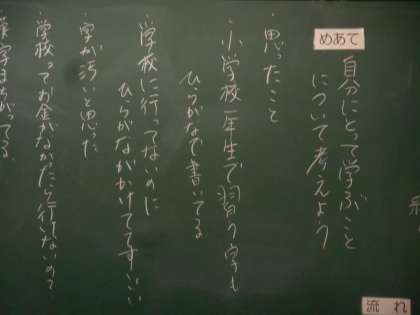 めあて
自分にとって学ぶこと
について考えよう
・思ったこと
・小学校一年生で習う字も
ひらがなで書いてる
・学校に行ってないのに
ひらがながかけててすごい
・字が汚いと思った
・学校ってお金がなかったら行けないの?
漢字まちがってる
流れ